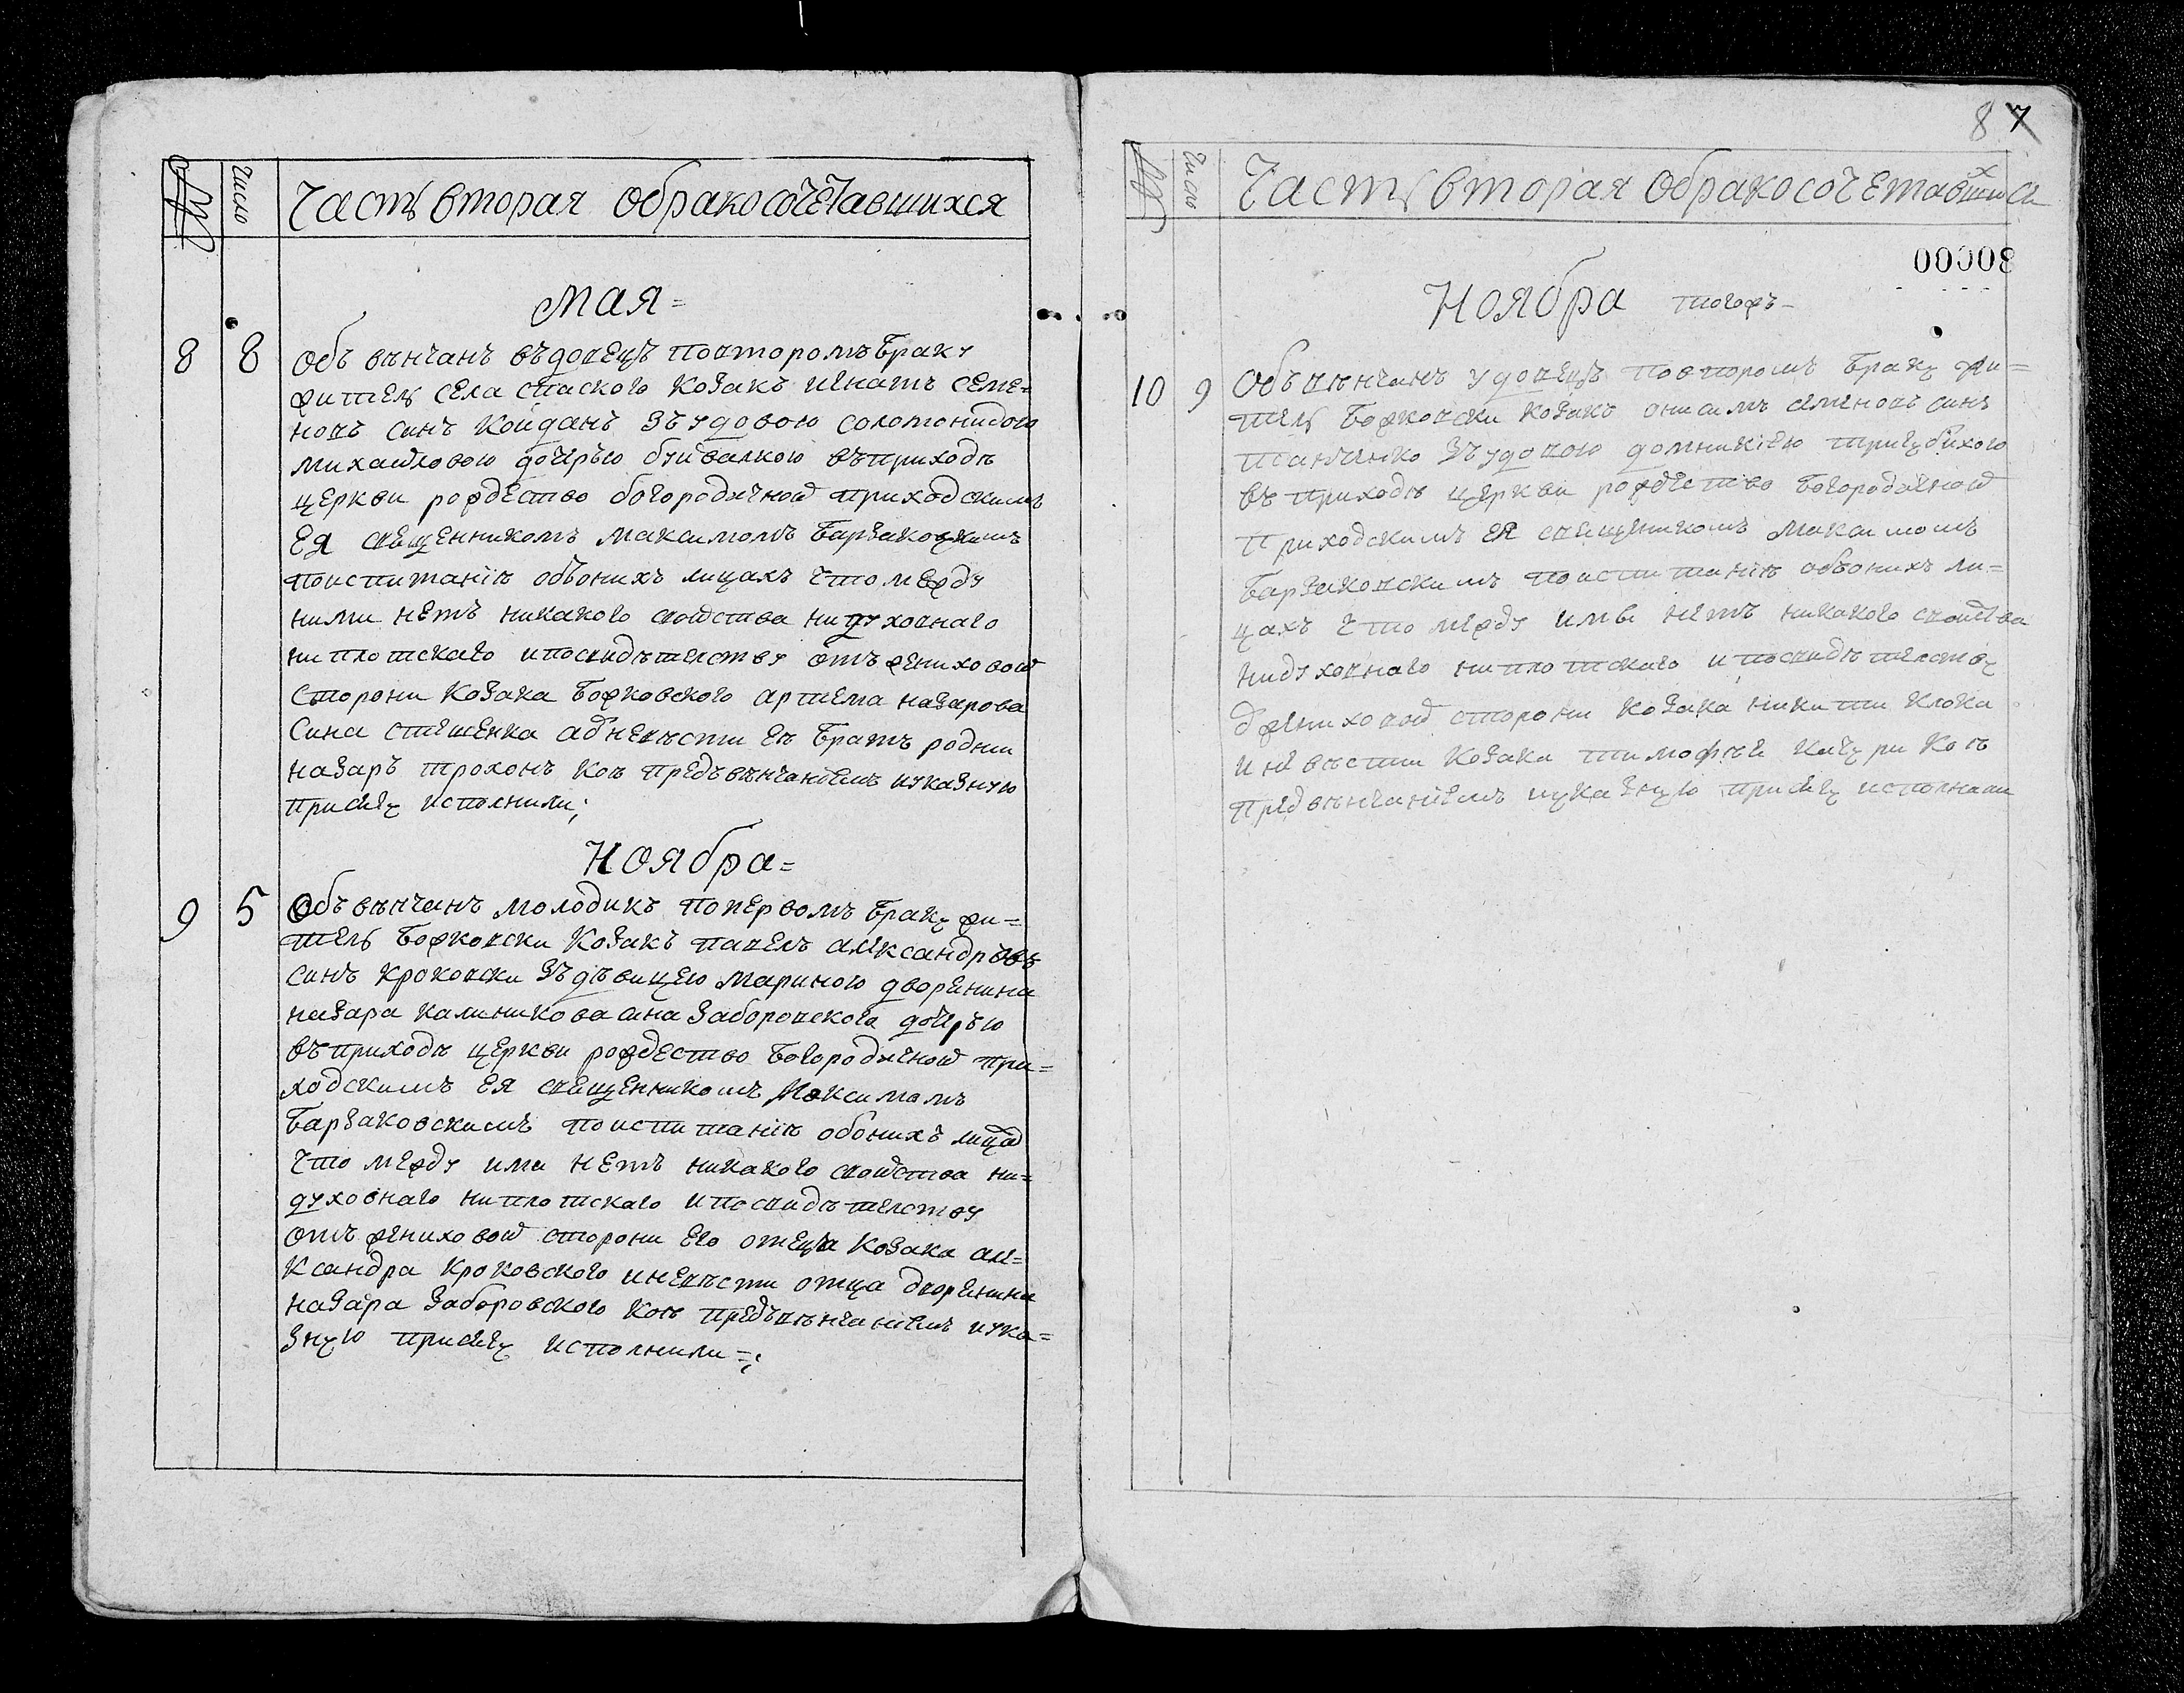 №
Число
Часть вторая обракосочетавшихся
Мая=
8 8 Объ вѣнчанъ въдовецъ повторомъ браку
житель села спаского козакъ игнатъ семе=
новъ синъ Койданъ зъ удовою соломонидою
михайловою дочерью буйвалкою въ приходѣ
церкви рождество богородичной приходскимъ
ея свещенникомъ максимомъ Барзаковскимъ
поиспитанію объонихъ лицахъ что между
ними нетъ никакого свойства ни духовнаго
ни плотскаго и посвидѣтелству отъ жениховой
сторони Козака Божковского артема назарова
Сина стешенка а от невѣсти ея братъ родни
назаръ трохонъ кои предъ вѣнчаніемъ и указную
присягу исполнили;
Ноября=
9 5 Объ вѣнчанъ молодикъ поперовомъ браку жи=
тель Божковски Козакъ павелъ александровъ
синъ кроковски зъ дѣвицею мариною дворенина
назара калиникова сина заборовского дочерью
въ приходѣ церкви рождество Богородичной при=
ходскимъ ея свещенникомъ Максимомъ
Барзаковскимъ поиспитанію обонихъ лицах
что между ими нетъ никакого свойства ни=
духовнаго ни плотскаго и посвидѣтелству
отъ жениховой сторони его отеца козака але=
ксандра кроковского и невѣсти отца дворенина
назара заборовского кои предъ вѣнчаніемъ и ука=
зную присягу исполнили=;
8 7
№
Число
Часть вторая обракосочетавшихся
00008
Ноября тогожъ-
10 9 Объ вѣнчанъ удовецъ повторомъ браку жи=
тель Божковски козакъ онисимъ семеновъ синъ
зъ удовою домникіею
въ приходѣ церкви рождество Богородичной
приходскимъ ея свещеникомъ Максимомъ
Барзаковскимъ поиспитанію объонихъ ли=
цахъ что между ими нетъ никакого свойства
ни духовнаго ни плотского и посвидѣтелству
от жениховой сторони козака никити клока
и невѣсти козака тимофѣя кои
пред вѣнчаніемъ и указную присягу исполнили